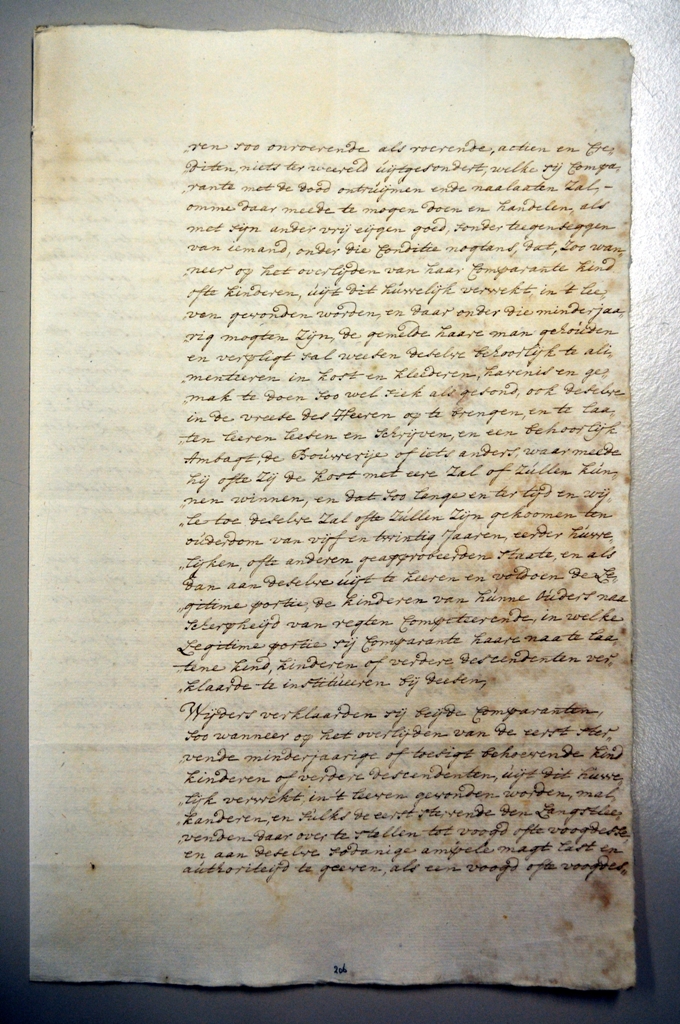 ren soo onroerende als roerende, actien en Cre-
diten, niets ter weereld uijtgesondert, welke sij Compa-
rante met de dood ontruijmen ende naalaaten Zal,-
omme daar meede te mogen doen en handelen, als
met sijn ander vrij eijgen goed, sonder teegenseggen
van iemand, onder die Conditie nogtans, dat, Zoo wan-
neer op het overlijden van haar Comparante kind
ofte kinderen, uijt dit huwelijk verwekt, in 't lee-
ven gevonden worden, en daar onder die minderjaa-
rig mogten Zijn, de gemelde haare man gehouden
en verpligt sal weesen deselve behoorlijk te ali-
menteeren in kost en kleederen, havenis en ge-
mak te doen soo wel siek als gesond, ook deselve
in de vreese des Heeren op te brengen, en te laa-
ten leeren leesen en schrijven, en een behoorlijk
Ambagt, de Bouwerije of iets anders, waar meede
hij ofte Zij de kost met eere Zal of Zullen kun-
nen winnen, en dat soo lange en ter tijd en wij-
le toe deselve Zal ofte Zullen Zijn gekoomen ten
ouderdom van vijf en twintig Jaaren, eerder huwe-
lijken, ofte anderen geapprobeerden staate, en als
dan aan deselve uijt te keeren en voldoen de Le-
gitime portie, de kinderen van hunne Ouders naa
scherpheijd van regten Competeerende, in welke
Legitime portie sij Comparante haare naa te laa-
tene kind, kinderen of verdere descendenten ver-
klaarde te institueeren bij deesen,
Wijders verklaarden sij beijde Comparanten,
soo wanneer op het overlijden van de eerst ster-
vende minderjaarige of toesigt behoevende kind
kinderen of verdere descendenten, uijt dit huwe-
lijk verwekt, in 't leeven gevonden worden, mal-
kanderen, en sulks de eerst stervende den Langstlee-
venden daar over te stellen tot voogd ofte voogdesse
en aan deselve sodanige ampele magt last en
authoriteijd te geeven, als een voogd ofte voogdes-
206